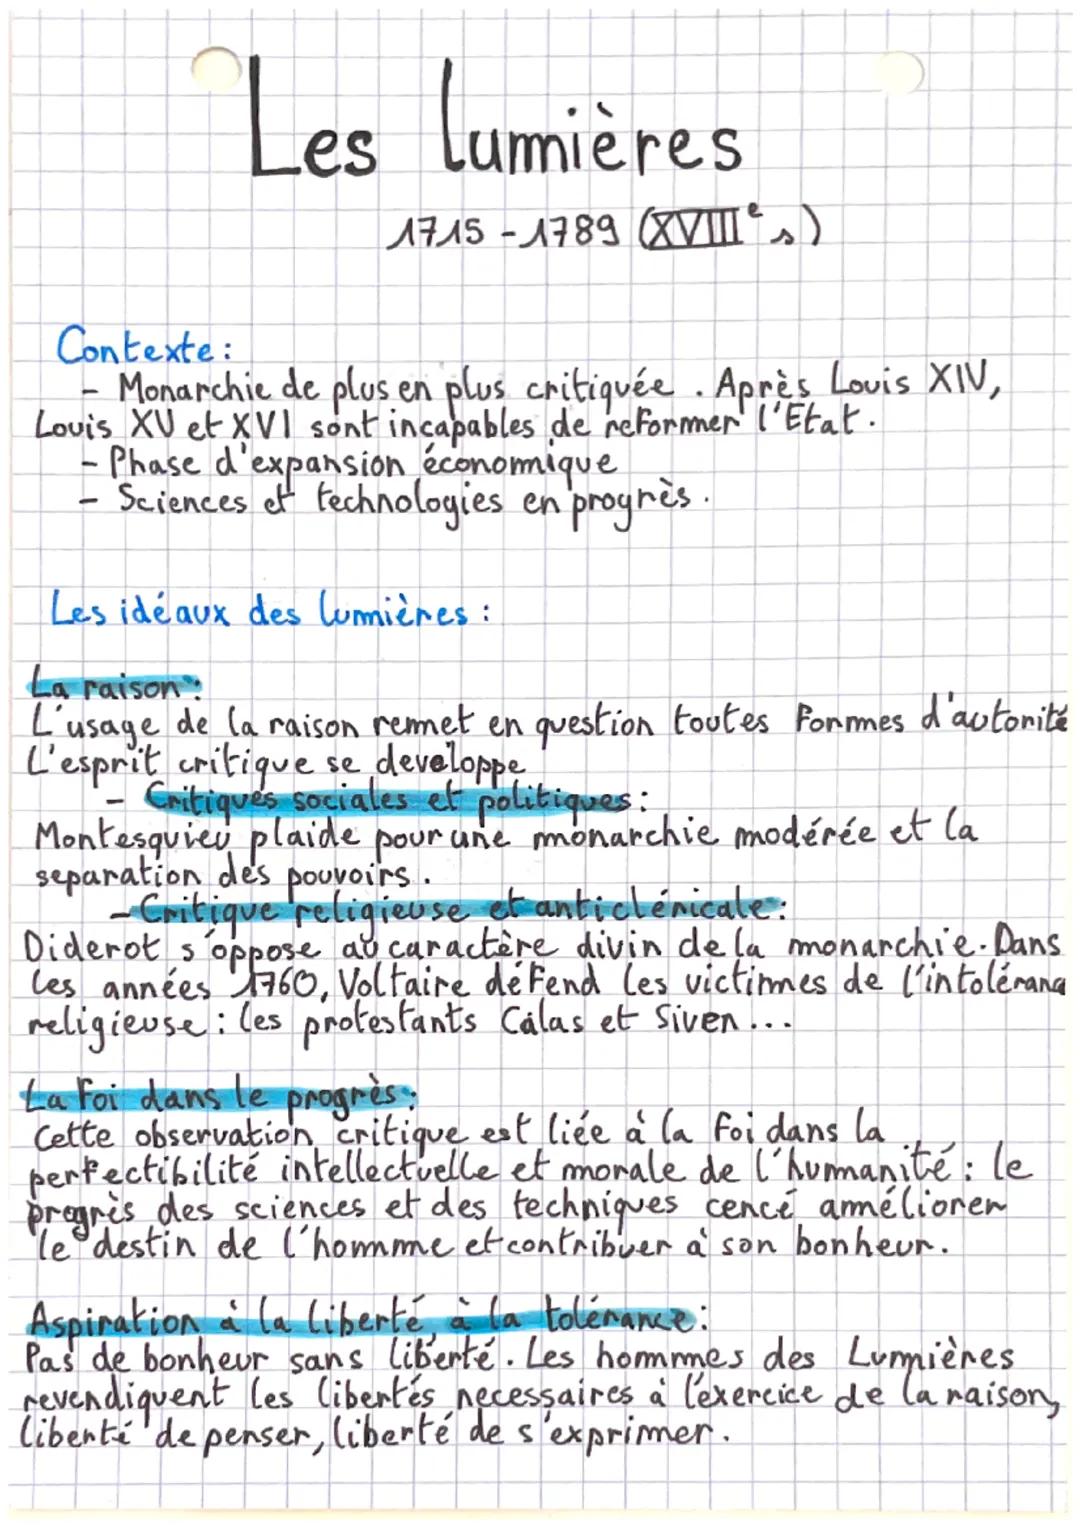 Les lumières
1715-1789 (XVIIIe s)
Contexte :
- Monarchie de plus en plus critiquée. Après Louis XIV,
Louis XV et XVI sont incapables de reformer l'Etat.
- Phase d'expansion économique
- Sciences et technologies en progrès.
Les idéaux des lumières :
La raison :
L'usage de la raison remet en question toutes formes d'autorité
L'esprit critique se developpe
- Critiques sociales et politiques :
Montesquieu plaide pour une monarchie modérée et la
separation des pouvoirs.
- Critique religieuse et anticléricale :
Diderot s'oppose au caractère divin de la monarchie. Dans
les années 1760, Voltaire défend les victimes de l'intoléranc
religieuse : les protestants Calas et Siven ...
La foi dans le progrès :
Cette observation critique est liée à la foi dans la
perfectibilité intellectuelle et morale de l'humanité : le
progrès des sciences et des techniques cencé amméliorer
le destin de l'homme et contribuer à son bonheur.
Aspiration à la liberté, à la tolérance :
Pas de bonheur sans liberté. Les hommes des Lumières
revendiquent les libertés necessaires à l'exercice de la raison,
liberté de penser, liberté de s'exprimer.